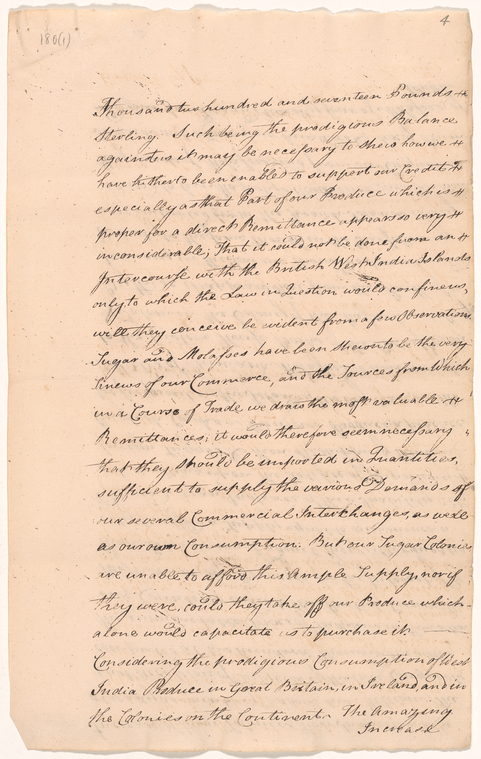 4
180(1)
Thousand two hundred and seventeen Pounds
Sterling. Such being the prodigious Balance
against us it may be necessary to shew how we
have hitherto been enabled to support our Credit
especially as that Part of our Produce which is
proper for a direct Remittance appears so very
inconsiderable; That it could not be done from an
Intercourse with the British West India Islands
only to which the Law in Question would confine us,
will they conceive be evident from a few Observations.
Sugar and Molasses have been shewn to be the very
sinews of our Commerce, and the Sources from Which
in a Course of Trade we draw the most valuable
Remittances; it would therefore seem necessary
that they should be imported in Quantities,
sufficient to supply the various Demands of
our several Commercial Interchanges, as well
as our own Consumption. But our Sugar Colonies
are unable to afford this Ample Supply, nor if
they were, could they take off our Produce which
alone would capacitate us to purchase it
Considering the prodigious Consumption of West
India Produce in Great Britain, in Ireland, and in
the Colonies on the Continent. The Amazing
Increase